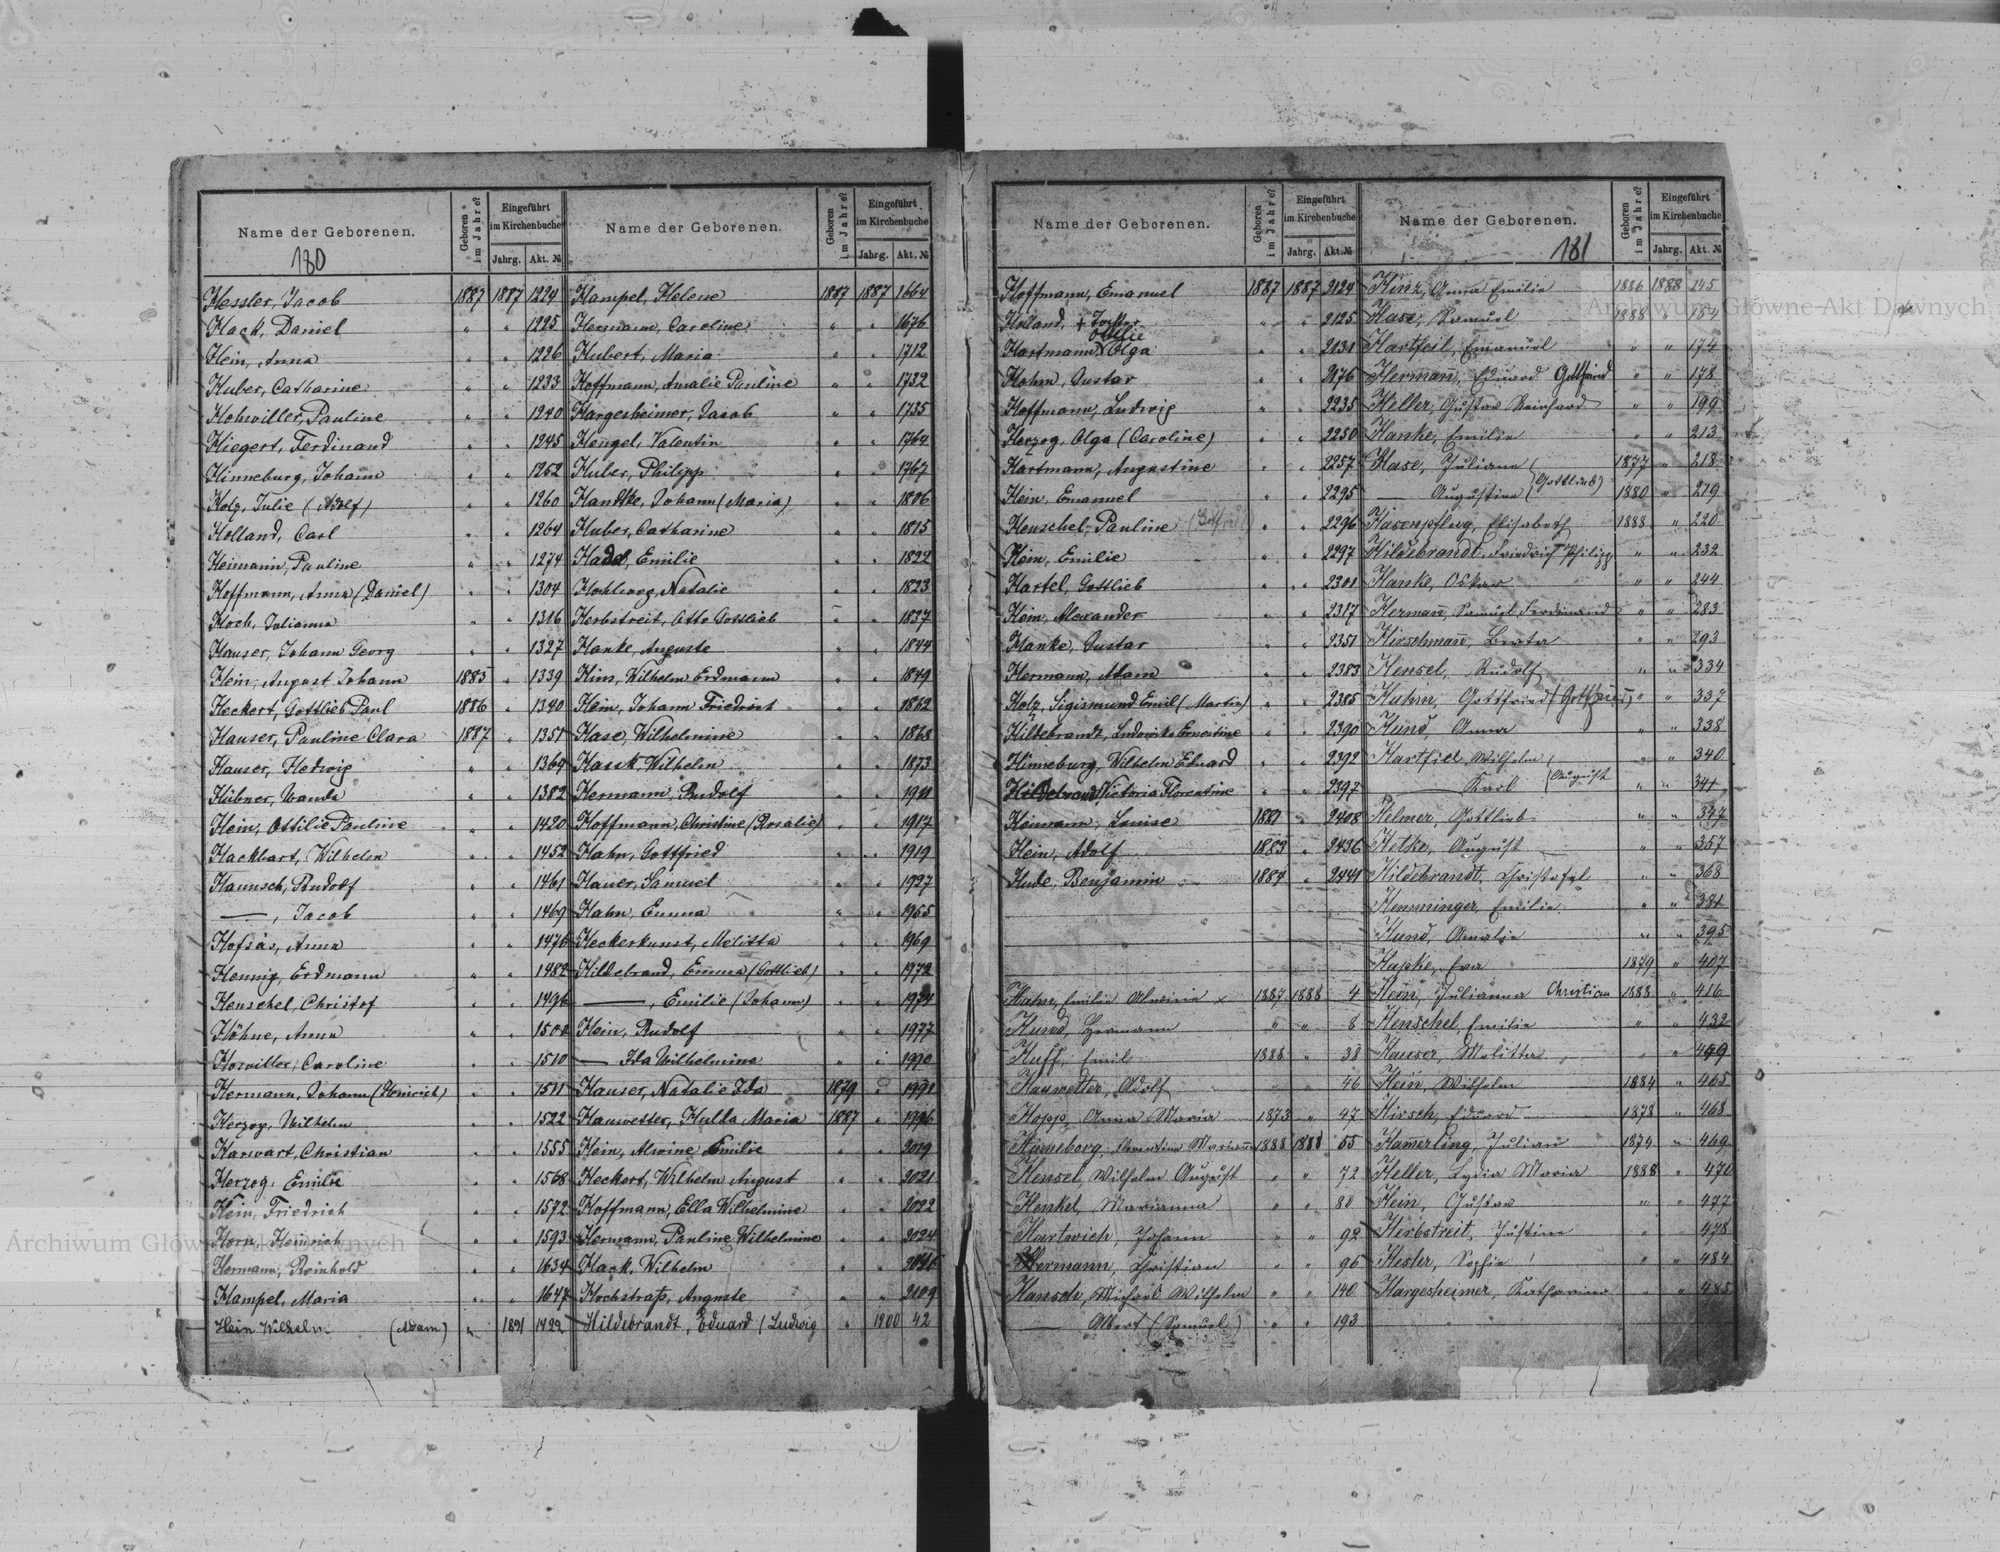 Name der Geborenen.
Geboren im Jahre?
Eingeführt im Kirchenbuche
Jahrg.
Akt. №
180
Hessler, Jacob 1887 1887 1224
Hack, Daniel " " 1225
Hein, Anna " " 1226
Huber, Catharine " " 1233
Hohwiller, Pauline " " 1240
Hiegert, Ferdinand " " 1245
Hinneburg, Johann " " 1252
Holz, Julie (Adolf) " " 1260
Holland, Carl " " 1264
Heimann, Pauline " " 1274
Hoffmann, Anna (Daniel) " " 1304
Hoch, Julianna " " 1316
Hauser, Johann Georg " " 1327
Hein, August Johann 1885 " 1339
Heckert, Gottlieb Paul 1886 " 1340
Hauser, Pauline Clara 1887 " 1351
Hauser, Hedwig " " 1369
Hübner, Wanda " " 1382
Hein, Ottilie Pauline " " 1420
Hackbart, Wilhelm " " 1452
Haunsch, Rudolf " " 1461
—, Jacob " " 1469
Hofsäs, Anna " " 1476
Hennig, Erdmann " " 1482
Henschel, Christof " " 1496
Höhne, Anna " "
Horwiller, Caroline " " 1510
Hermann, Johann (Heinrich) " " 1511
Herzog, Wilhelm " " 1522
Harwart, Christian " " 1555
Herzog, Emilie " " 1568
Hein, Friedrich " " 1572
Horn, Heinrich " " 1593
Hermann, Reinhold " " 1634
Hampel, Maria " " 1647
Hein Wilhelm (Adam) " 1891 1422
Name der Geborenen.
Geboren im Jahre?
Eingeführt im Kirchenbuche
Jahrg.
Akt. №
Hampel, Helene 1887 1887 1664
Hermann, Caroline " " 1676
Hubert, Maria " " 1712
Hoffmann, Amalie Pauline " " 1732
Hargesheimer, Jacob " " 1735
Hengel, Valentin " " 1764
Huber, Philipp " " 1767
Handtke, Johann (Maria) " " 1806
Huber, Catharine " " 1815
Hadel, Emilie " " 1822
Hohlweg, Natalie " " 1823
Herbstreit, Otto Gottlieb " " 1837
Hanke, Auguste " " 1844
Hins, Wilhelm Erdmann " " 1849
Hein, Johann Friedrich " " 1862
Hase, Wilhelmine " " 1868
Hauk, Wilhelm " " 1873
Hermann, Rudolf " " 1911
Hoffmann, Christine (Rosalie) " " 1917
Hahn, Gottfried " " 1919
Hauer, Samuel " " 1927
Hahn, Emma " " 1955
Heckerkunst, Melitta " " 1969
Hildebrand, Emma (Gottlieb) " " 1972
—, Emilie (Johann) " " 1974
Hein, Rudolf " " 1977
— Ida Wilhelmine " " 1990
Hauser, Natalie Ida 1879 " 1991
Hauwetter, Hulda Maria 1887 " 1996
Hein, Alwine Emilie " " 2019
Heckert, Wilhelm August " " 2021
Hoffmann, Ella Wilhelmine " " 2022
Hermann, Pauline Wilhelmine " " 2024
Hack, Wilhelm " "
Hochstraß, Auguste " " 2109
Hildebrandt, Eduard (Ludwig " 1900 42
Name der Geborenen.
Geboren im Jahre?
Eingeführt im Kirchenbuche
Jahrg.
Akt. №
Hoffmann, Emanuel 1887 1887 2124
Holland, + Tochter " " 2125
Ottilie
Hartmann, Olga " " 2131
Hohm, Gustav " " 2176
Hoffmann, Ludwig " " 2235
Herzog, Olga (Caroline) " " 2250
Hartmann, Augustine " " 2257
Hein, Emanuel " " 2295
Henschel, Pauline " " 2296
Hein, Emilie " " 2297
Hartel, Gottlieb " " 2301
Hein, Alexander " " 2317
Hanke, Gustav " " 2351
Hermann, Adam " " 2383
Holz, Sigismund Emil (Martin) " " 2385
Hildebrandt, Ludowika Ernestine " " 2390
Hinneburg, Wilhelm Eduard " " 2392
Hildebrand, Victoria Florentine " " 2397
Heimann, Louise 1881 " 2408
Hein, Adolf 1883 " 2436
Hude, Benjamin 1884 " 2441
Hahn, Emilie Alwinie x 1887 1888 4
Hund, Hermann " " 8
Huff, Emil 1888 " 38
Hauwetter, Adolf " " 46
Hopp, Anna Maria 1873 " 47
Hinneborg, Florentine Marianne 1888 1888 55
Hensel, Wilhelm August " " 72
Henkel, Marianna " " 80
Hartwich, Johann " " 92
Hermann, Christian " " 96
Hansch, Michael Wilhelm " " 140
— Albert (Samuel) " " 193
Name der Geborenen.
Geboren im Jahre?
Eingeführt im Kirchenbuche
Jahrg.
Akt. №
181
Hinz, Anna Emilie 1886 1888 145
Hase, Samuel 1888 " 154
Hartfeil, Emanuel " " 174
Hermañ, Eduard Gottfried " " 178
Heller, Gustav Reinhard " " 199
Hanke, Emilie " " 213
Hase, Juliana 1877 " 218
— Augustina (Gottlieb) 1880 " 219
Hasenpflug, Elisabeth 1888 " 220
Hildebrandt, Friedrich Philipp " " 232
Hanke, Oskar " " 244
Hermañ, Samuel Ferdinand " " 283
Hirschmañ, Berta " " 293
Hensel, Rudolf " " 334
Hahn, Gottfried (Gottfried) " " 337
Hund, Anna " " 338
Hartfiel, Wilhelm " " 340
— Karl (August " " 341
Helmer, Gottlieb " " 347
Hetke, August " " 357
Hildebrandt, Christofel " " 368
Hemminger, Emilie " " 381
Hund, Amalie " " 395
Hapke, Eva 1879 " 407
Hein, Julianna Christian 1888 " 416
Henschel, Emilie " " 432
Hauser, Melitta " " 459
Hein, Wilhelm 1884 " 465
Hirsch, Eduard 1878 " 468
Hamerling, Julian 1874 " 469
Heller, Lydia Maria 1888 " 470
Hein, Gustav " " 477
Herbstreit, Justine " " 478
Hester, Sophie " " 484
Hargesheimer, Katharina " " 485
Archiwum Główne Akt Dawnych
Archiwum Główne Akt Dawnych